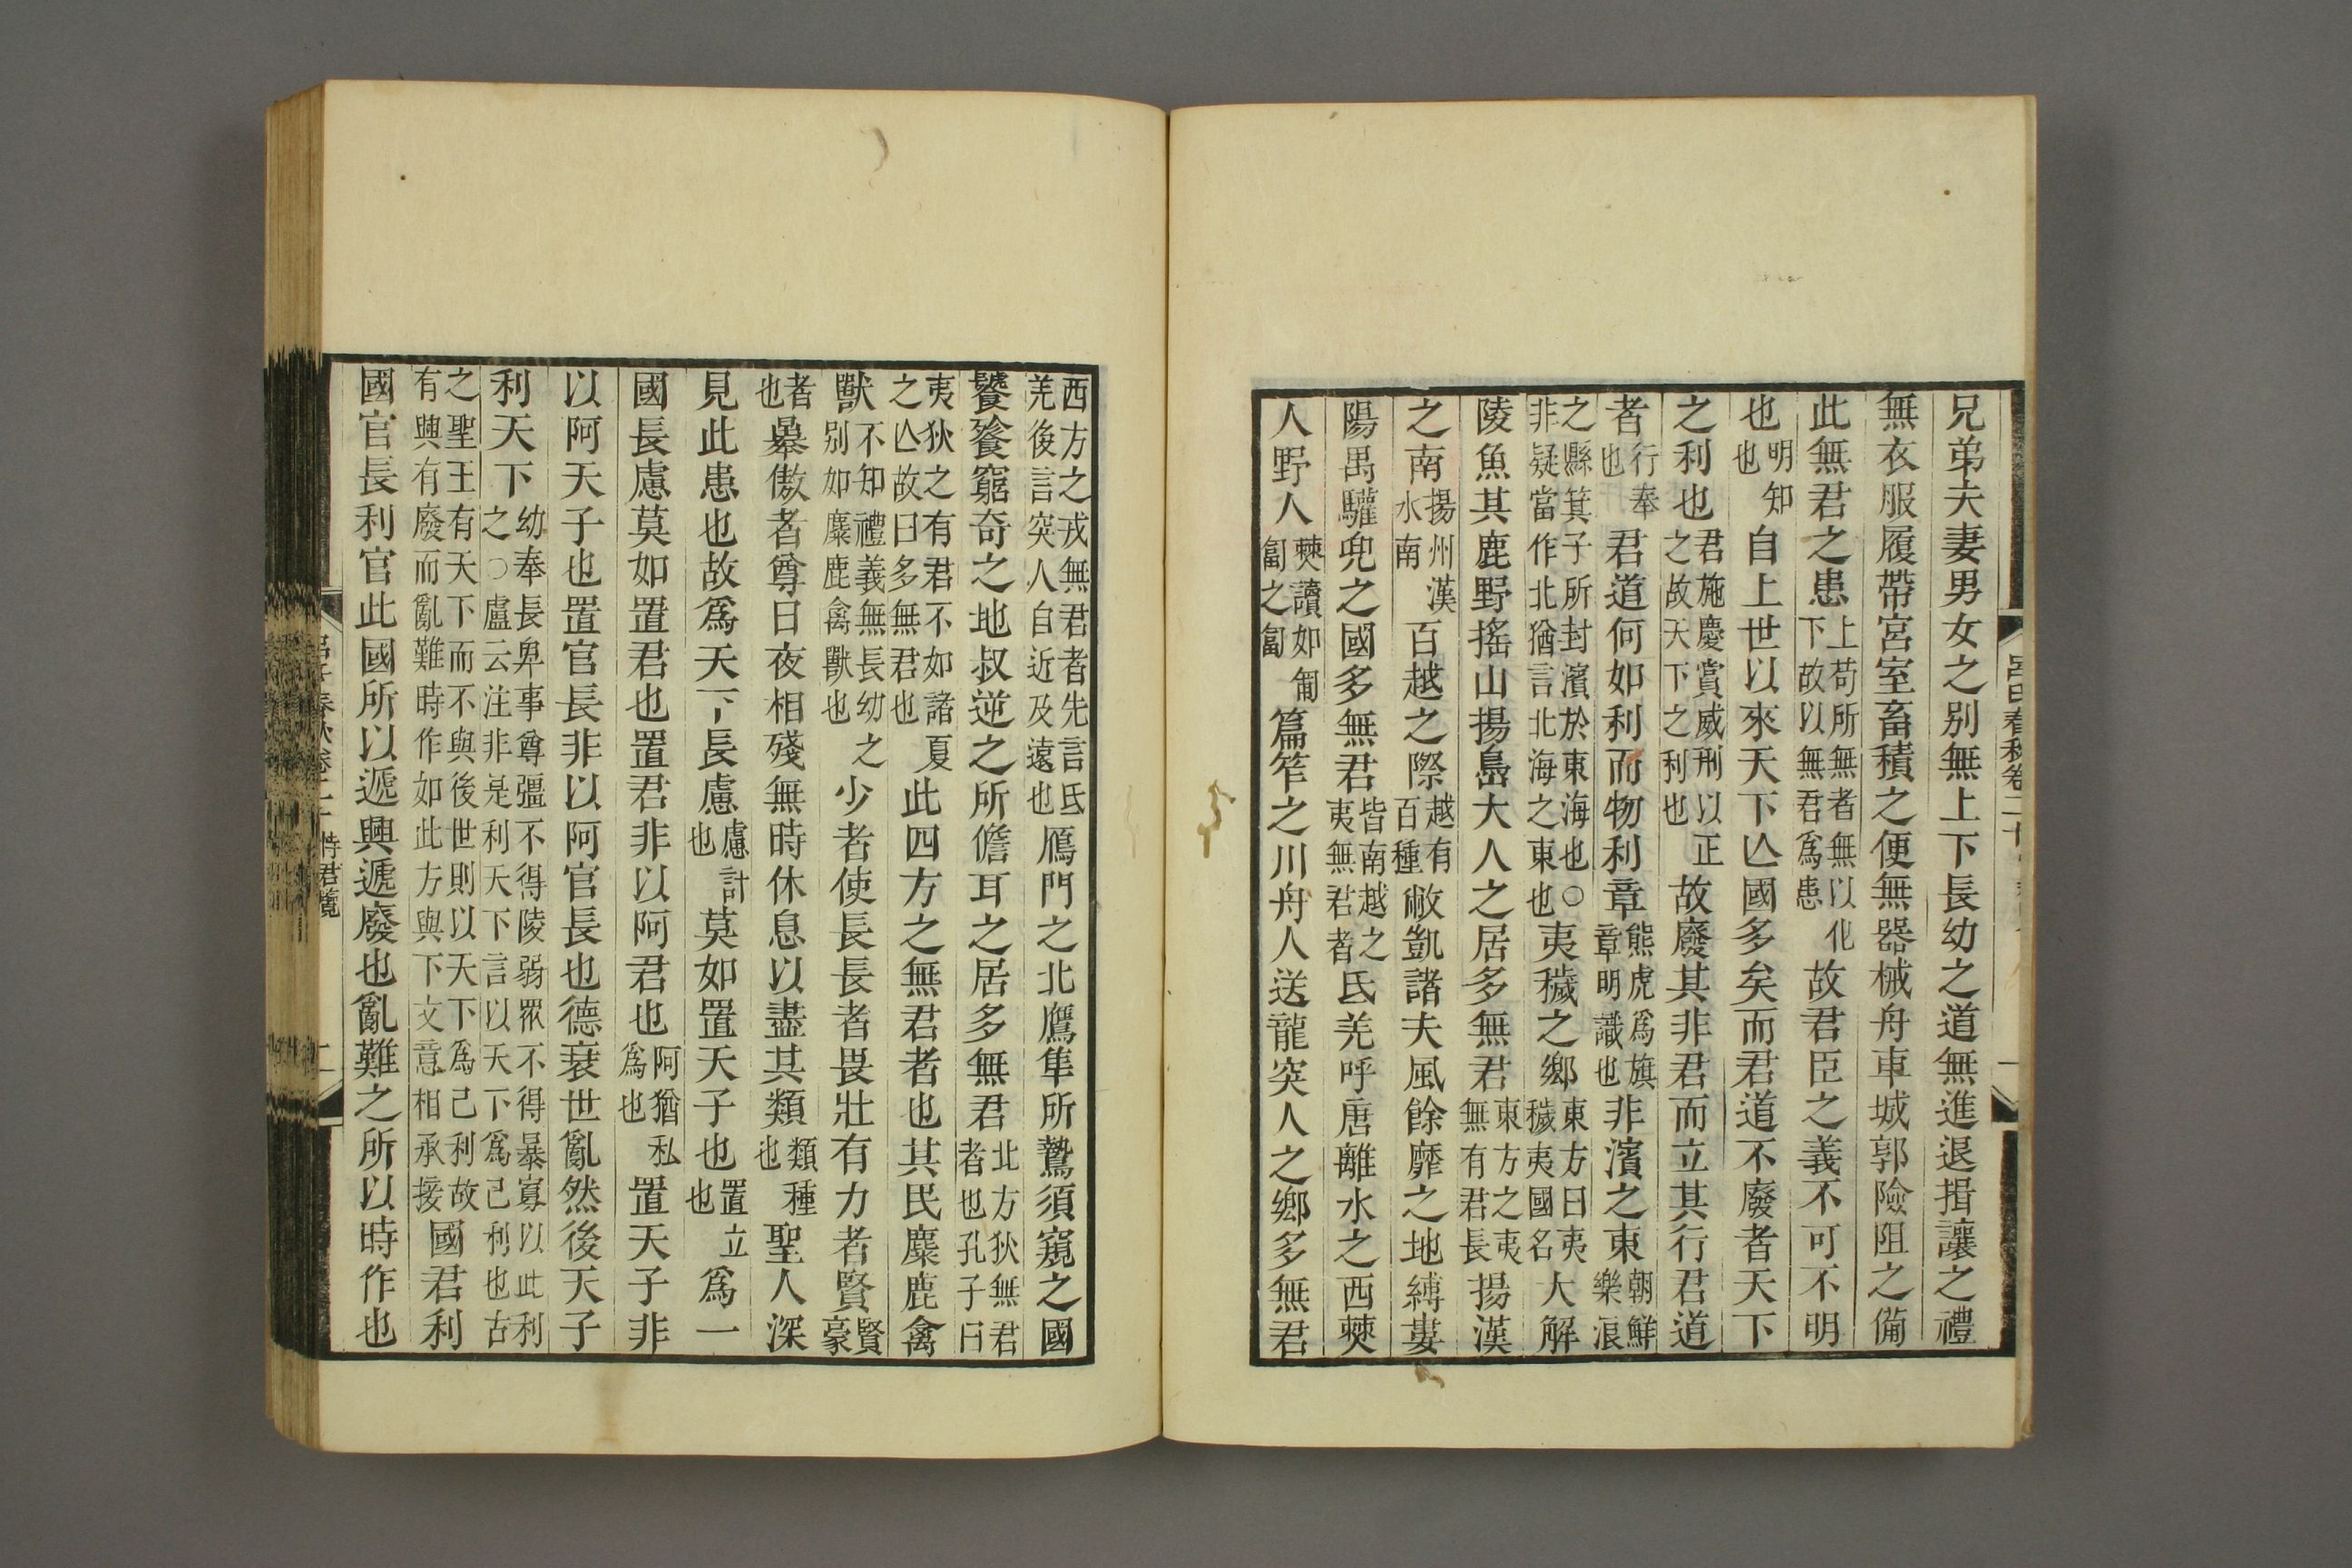 兄弟夫妻男女之別無上下長幼之道無進退揖讓之禮
無衣服履帶宮室畜積之便無器械舟車城郭險阻之備
此無君之患上苟所無者無以化下故以無君爲患故君臣之義不可不明
也明知也自上世以來天下亾國多矣而君道不廢者天下
之利也君施慶賞威刑以正之故天下之利也故廢其非君而立其行君道
者行奉也君道何如利而物利章熊虎爲旗章明識也非濱之東朝鮮樂浪
之縣箕子所封濱於東海也○非疑當作北猶言北海之東也夷穢之鄉東方曰夷穢夷國名大解
陵魚其鹿野搖山揚島大人之居多無君東方之夷無有君長揚漢
之南揚州漢水南百越之際越有百種敝凱諸夫風餘靡之地縛婁
陽禺驩兜之國多無君皆南越之夷無君者氐羌呼唐離水之西僰
人野人僰讀如匍匐之匐篇笮之川舟人送龍突人之鄉多無君
呂氏春秋卷二十
西方之戎無君者先言氐羌後言突人自近及遠也鴈門之北鷹隼所鷙須窺之國
饕餮窮奇之地叔逆之所儋耳之居多無君北方狄無君者也孔子曰
夷狄之有君不如諸夏之亾故曰多無君也此四方之無君者也其民麋鹿禽
獸不知禮義無長幼之別如麋鹿禽獸也少者使長長者畏壯有力者賢賢豪
者也暴傲者尊日夜相殘無時休息以盡其類類種也聖人深
見此患也故爲天下長慮慮計也莫如置天子也置立也爲一
國長慮莫如置君也置君非以阿君也阿猶私爲也置天子非
以阿天子也置官長非以阿官長也德衰世亂然後天子
利天下幼奉長卑事尊彊不得陵弱眾不得暴寡以此利之○盧云注非是利天下言以天下爲己利也古
之聖王有天下而不與後世則以天下爲己利故有興有廢而亂難時作如此方與下文意相承接國君利
國官長利官此國所以遞興遞廢也亂難之所以時作也
恃君覽
二